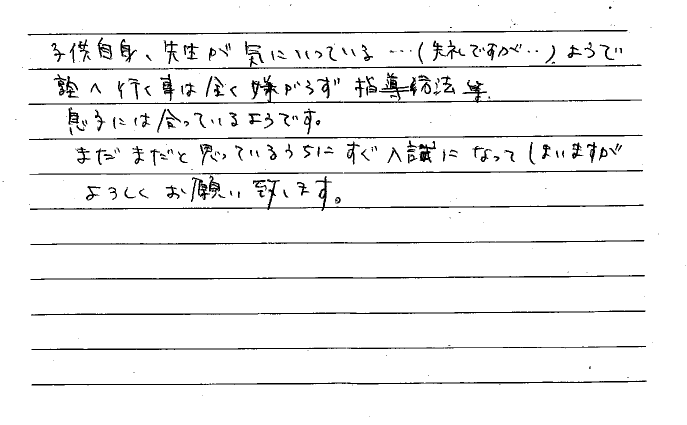 子供自身、先生が気にいっている…(失礼ですが‥)ようで
塾へ行く事は全く嫌がらず指導方法等、
息子には合っているようです。
まだまだと思っているうちにすぐ入試になってしまいますが
よろしくお願い致します。